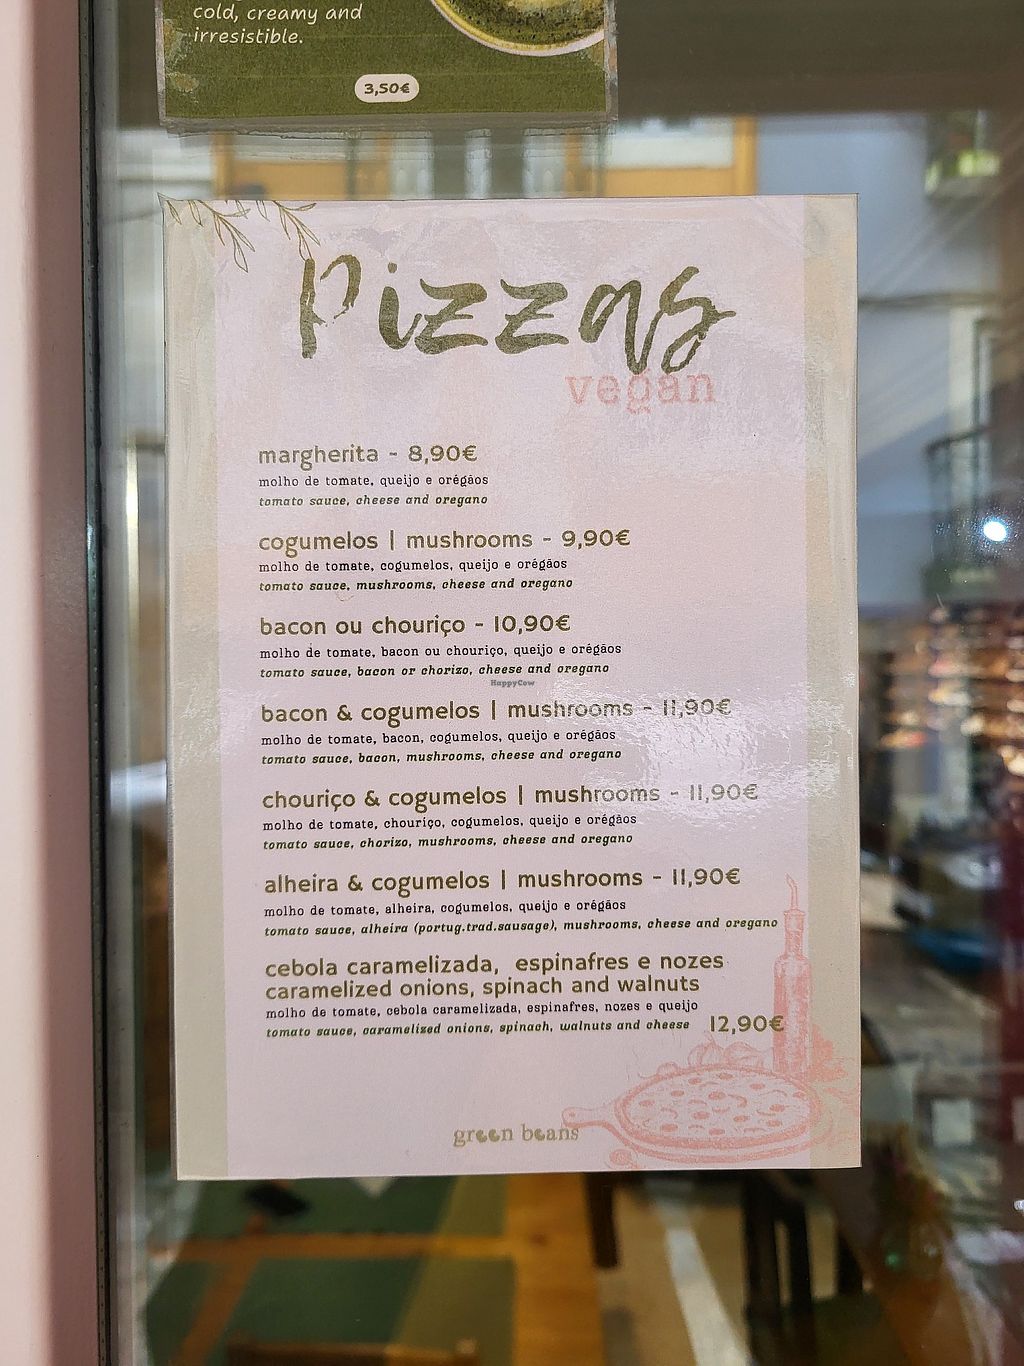 cold, creamy and
irresistible.
3,50€
Pizzas
vegan
margherita - 8,90€
molho de tomate, queijo e orégãos
tomato sauce, cheese and oregano
cogumelos | mushrooms - 9,90€
molho de tomate, cogumelos, queijo e orégãos
tomato sauce, mushrooms, cheese and oregano
bacon ou chouriço - 10,90€
molho de tomate, bacon ou chouriço, queijo e orégãos
tomato sauce, bacon or chorizo, cheese and oregano
HappyCow
bacon & cogumelos | mushrooms - 11,90€
molho de tomate, bacon, cogumelos, queijo e orégãos
tomato sauce, bacon, mushrooms, cheese and oregano
chouriço & cogumelos | mushrooms - 11,90€
molho de tomate, chouriço, cogumelos, queijo e orégãos
tomato sauce, chorizo, mushrooms, cheese and oregano
alheira & cogumelos | mushrooms - 11,90€
molho de tomate, alheira, cogumelos, queijo e orégãos
tomato sauce, alheira (portug.trad.sausage), mushrooms, cheese and oregano
cebola caramelizada, espinafres e nozes
caramelized onions, spinach and walnuts
molho de tomate, cebola caramelizada, espinafres, nozes e queijo
tomato sauce, caramelized onions, spinach, walnuts and cheese 12,90€
green beans